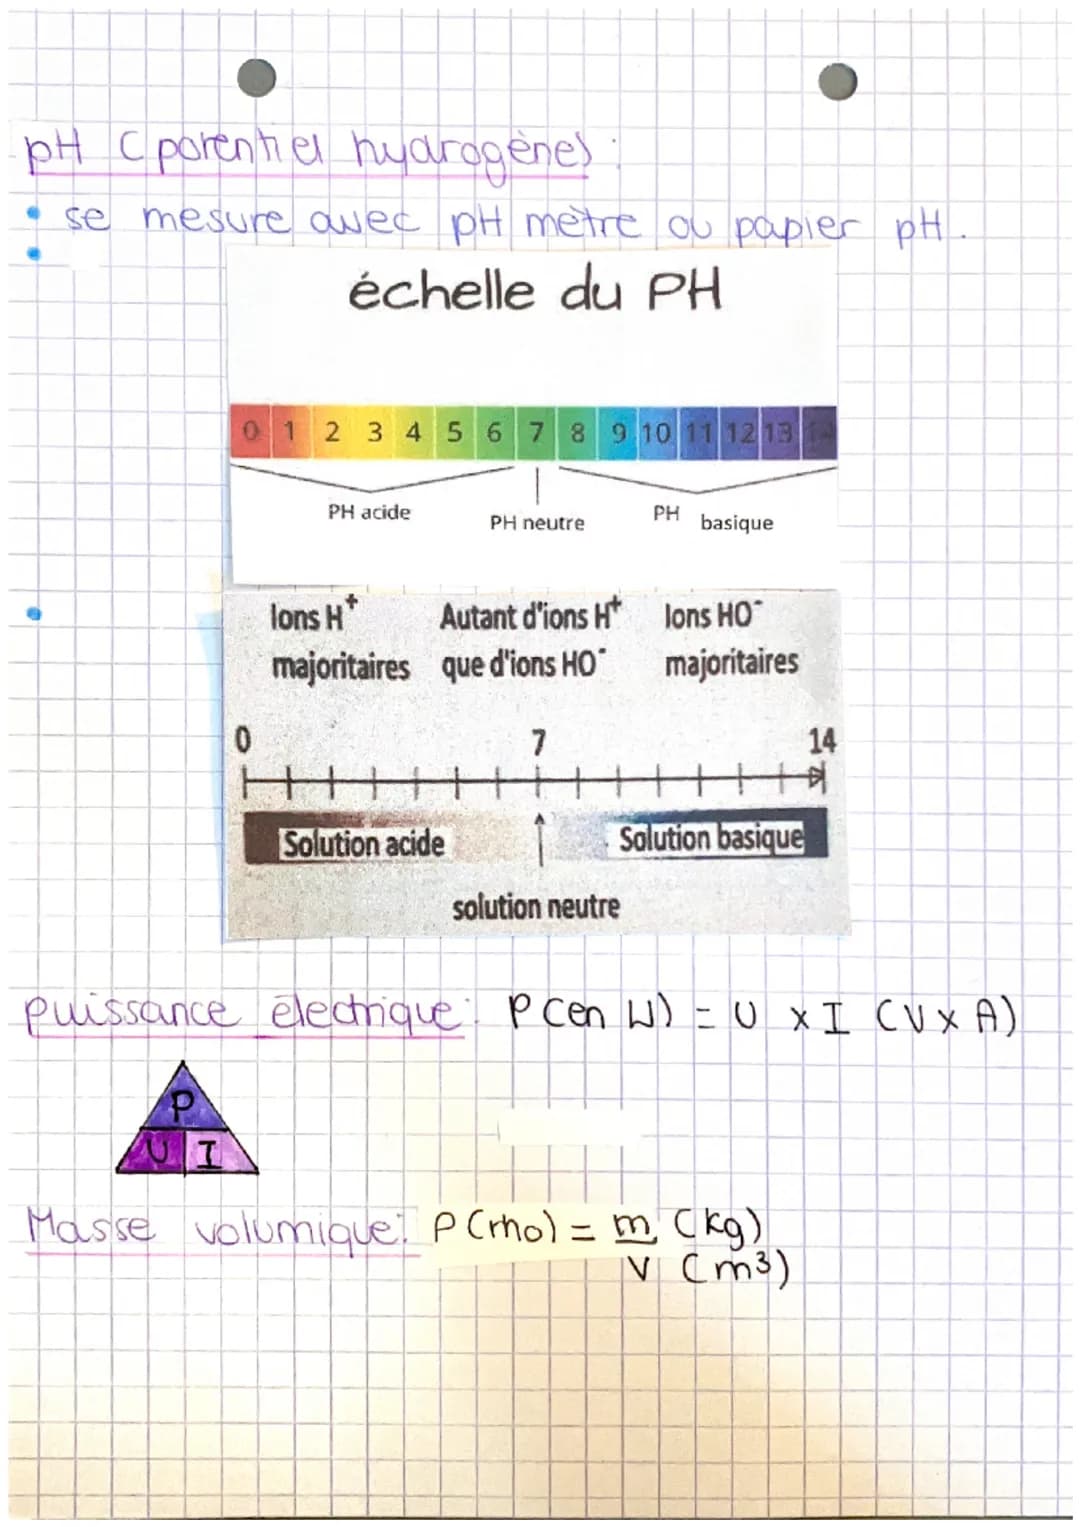 pH (potentiel hydrogène) :
• se mesure avec pH mètre ou papier pH.
échelle du PH
0 1 2 3 4 5 6 7 8 9 10 11 12 13 14
PH acide
PH neutre
PH basique
Ions H⁺ majoritaires
Autant d'ions H⁺ que d'ions HO⁻
Ions HO⁻ majoritaires
0 7 14
Solution acide
Solution basique
solution neutre
puissance électrique : P (en W) = U x I (V x A)
P
U I
Masse volumique : P (rho) = m (kg)
V (m³)